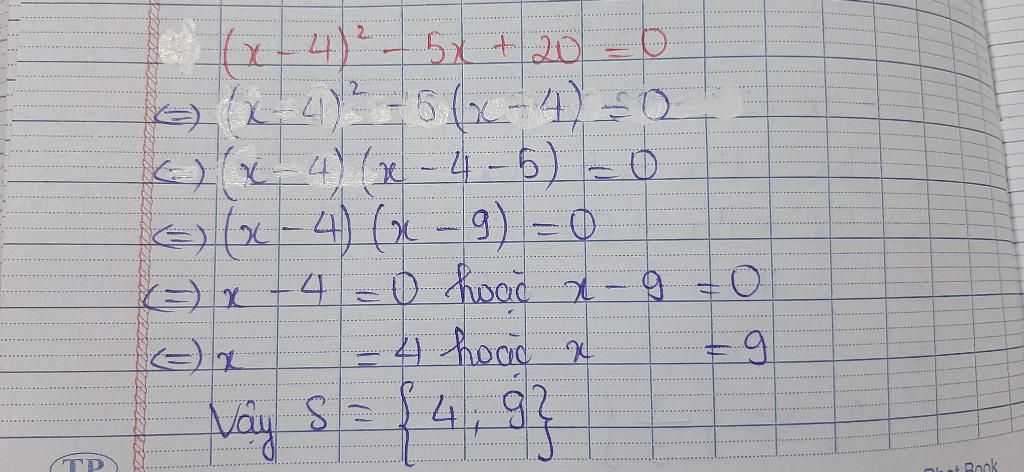 (x - 4)² - 5x + 20 = 0
<=> (x - 4)² - 5(x - 4) = 0
<=> (x - 4)(x - 4 - 5) = 0
<=> (x - 4)(x - 9) = 0
<=> x - 4 = 0 hoặc x - 9 = 0
<=> x = 4 hoặc x = 9
Vậy S = {4; 9}
TP
Book